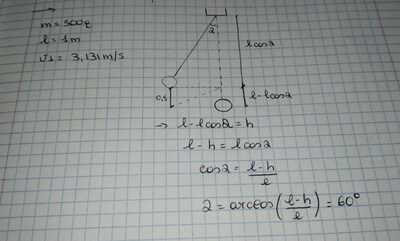 m = 500g
l = 1m
v1 = 3,131 m/s
α
l cosα
0,5
l - l cosα
→ l - l cosα = h
l - h = l cosα
cosα = \frac{l-h}{l}
α = arccos(\frac{l-h}{l}) = 60°